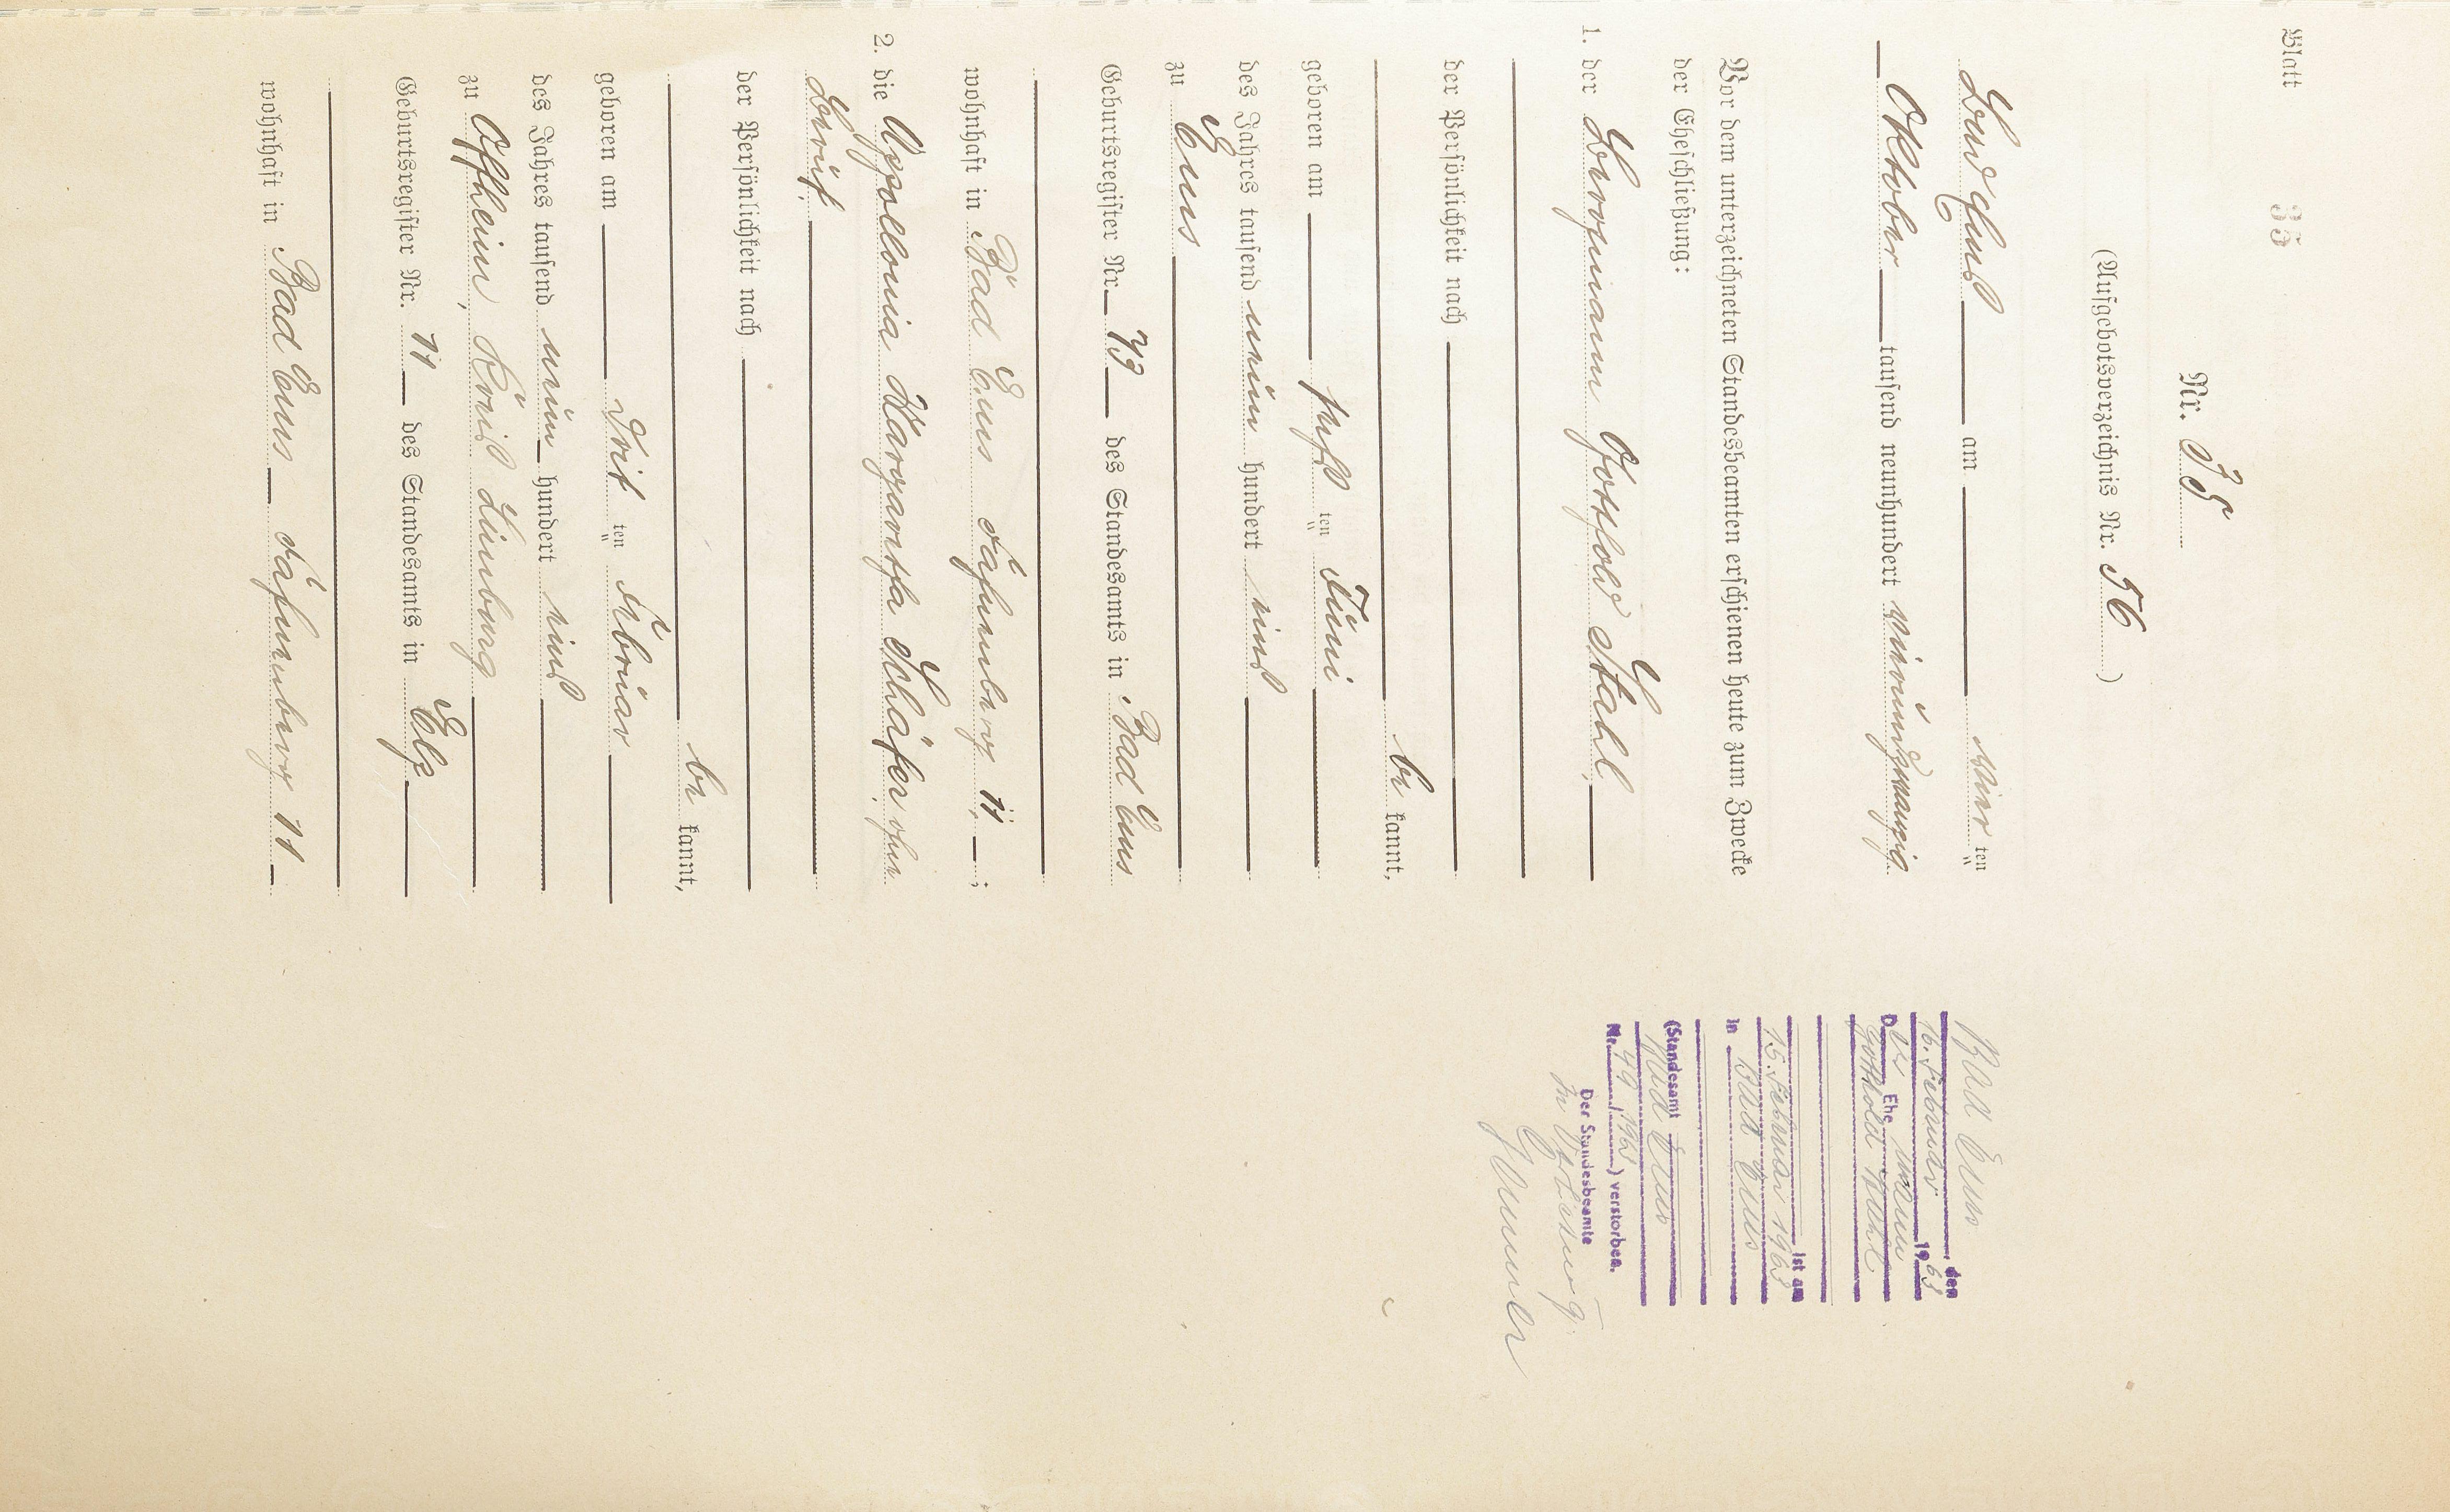 Blatt 35
Nr. 35
(Aufgebotsverzeichnis Nr. 56)
Bad Ems am vier ten
Oktober tausend neunhundert vierundzwanzig
Vor dem unterzeichneten Standesbeamten erschienen heute zum Zwecke
der Eheschließung:
1. der Gottfold Stahl,
der Persönlichkeit nach
be kannt,
geboren am sechs ten Juni
des Jahres tausend neun hundert eins
zu Ems
Geburtsregister Nr. 73 des Standesamts in Bad Ems
wohnhaft in Bad Ems 11;
2. die Appollonia Margaretha Schäfer, ohne
Beruf,
der Persönlichkeit nach
be kannt,
geboren am drit ten Februar
des Jahres tausend neun hundert eins
zu Offheim, Kreis Limburg
Geburtsregister Nr. 11 des Standesamts in Elz
wohnhaft in Bad Ems 11
Bad Ems, den
16. Februar 1963
Der Ehemann
Gotthold Stahl
ist am
15. Februar 1963
in Bad Ems
(Standesamt
Bad Ems
Nr. 49/1963) verstorben.
Der Standesbeamte
In Vertretung